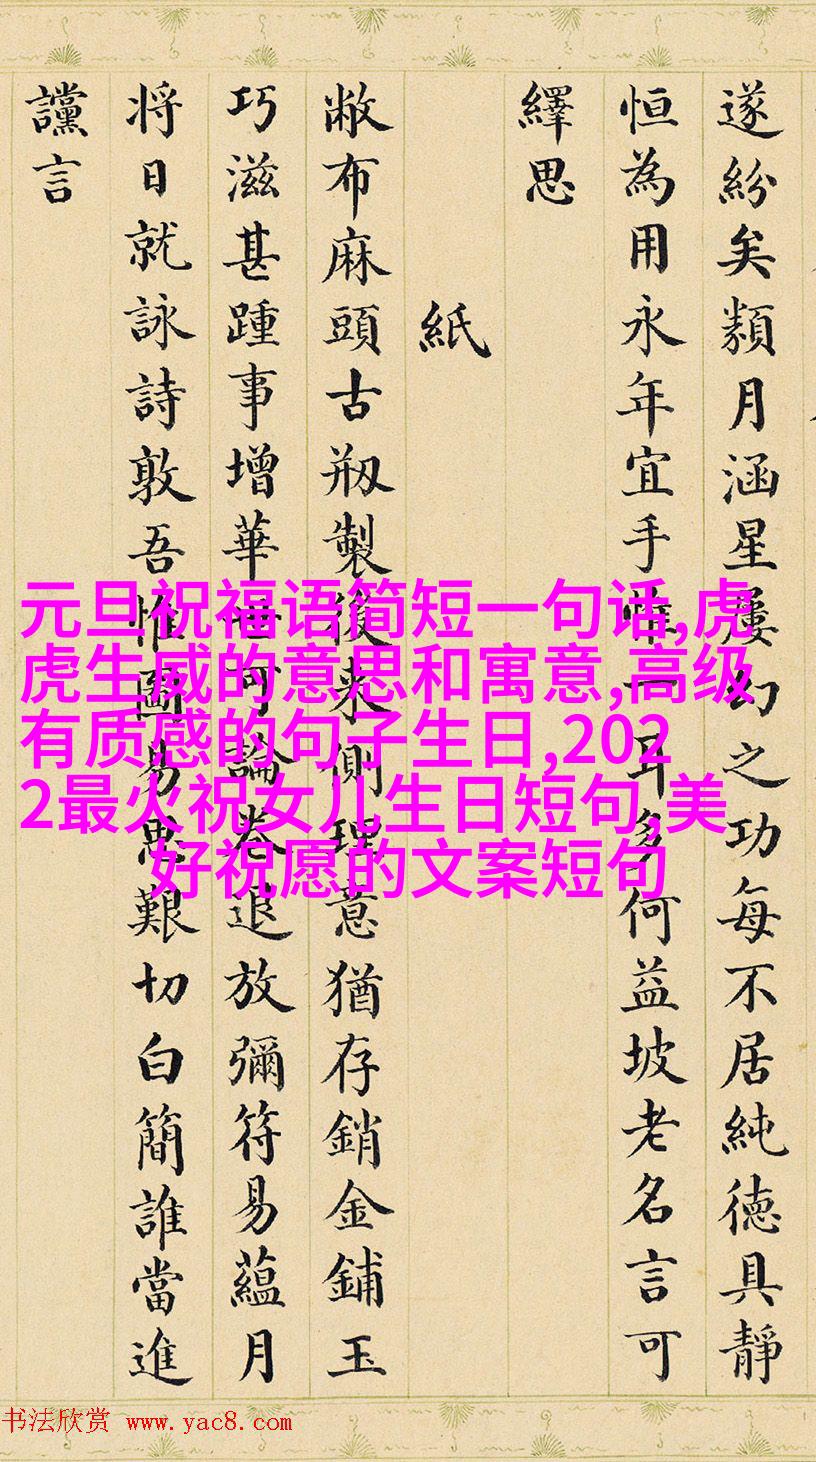 遂紛矣類月涵星屢幻之功每不居純德具靜
恒為用永年宜手惟一耳多何益坡老名言可
繹思
紙
敝布麻頭古剏製後来側理意猶存銷金鋪玉
巧滋甚踵事增華可論卷退放彌符易蘊月
将日就詠詩敦吾惟圖易思艱切白簡誰當進
讜言
元旦祝福语简短一句话,虎
虎生威的意思和寓意,高级
有质感的句子生日,202
2最火祝女儿生日短句,美
好祝愿的文案短句
书法欣赏 www.yac8.com